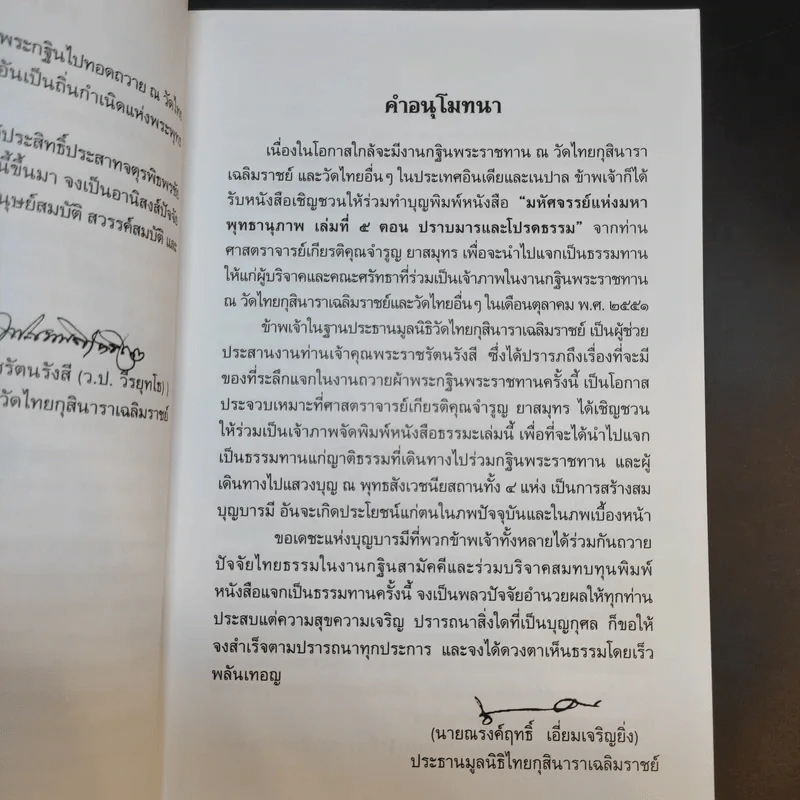 พระกฐินไปทอดถวาย ณ วัดไทย
อันเป็นถิ่นกำเนิดแห่งพระพุทธ
ประสิทธิ์ประสาทจตุรพิธพรชัย
นี้ขึ้นมา จงเป็นอานิสงส์ปัจจัย
นุษย์สมบัติ สวรรค์สมบัติ และ
รัตนรังสี (ว.ป. วีรยุทโธ)
วัดไทยกุสินาราเฉลิมราชย์
คำอนุโมทนา
เนื่องในโอกาสใกล้จะมีงานกฐินพระราชทาน ณ วัดไทยกุสินารา
เฉลิมราชย์ และวัดไทยอื่นๆ ในประเทศอินเดียและเนปาล ข้าพเจ้าก็ได้
รับหนังสือเชิญชวนให้ร่วมทำบุญพิมพ์หนังสือ "มหัศจรรย์แห่งมหา
พุทธานุภาพ เล่มที่ ๕ ตอน ปราบมารและโปรดธรรม" จากท่าน
ศาสตราจารย์เกียรติคุณจำรูญ ยาสมุทร เพื่อจะนำไปแจกเป็นธรรมทาน
ให้แก่ผู้บริจาคและคณะศรัทธาที่ร่วมเป็นเจ้าภาพในงานกฐินพระราชทาน
ณ วัดไทยกุสินาราเฉลิมราชย์และวัดไทยอื่นๆ ในเดือนตุลาคม พ.ศ. ๒๕๕๑
ข้าพเจ้าในฐานประธานมูลนิธิวัดไทยกุสินาราเฉลิมราชย์ เป็นผู้ช่วย
ประสานงานท่านเจ้าคุณพระราชรัตนรังสี ซึ่งได้ปรารภถึงเรื่องที่จะมี
ของที่ระลึกแจกในงานถวายผ้าพระกฐินพระราชทานครั้งนี้ เป็นโอกาส
ประจวบเหมาะที่ศาสตราจารย์เกียรติคุณจำรูญ ยาสมุทร ได้เชิญชวน
ให้ร่วมเป็นเจ้าภาพจัดพิมพ์หนังสือธรรมะเล่มนี้ เพื่อที่จะได้นำไปแจก
เป็นธรรมทานแก่ญาติธรรมที่เดินทางไปร่วมกฐินพระราชทาน และผู้
เดินทางไปแสวงบุญ ณ พุทธสังเวชนียสถานทั้ง ๔ แห่ง เป็นการสร้างสม
บุญบารมี อันจะเกิดประโยชน์แก่ตนในภพปัจจุบันและในภพเบื้องหน้า
ขอเดชะแห่งบุญบารมีที่พวกข้าพเจ้าทั้งหลายได้ร่วมกันถวาย
ปัจจัยไทยธรรมในงานกฐินสามัคคีและร่วมบริจาคสมทบทุนพิมพ์
หนังสือแจกเป็นธรรมทานครั้งนี้ จงเป็นพลวปัจจัยอำนวยผลให้ทุกท่าน
ประสบแต่ความสุขความเจริญ ปรารถนาสิ่งใดที่เป็นบุญกุศล ก็ขอให้
จงสำเร็จตามปรารถนาทุกประการ และจงได้ดวงตาเห็นธรรมโดยเร็ว
พลันเทอญ
(นายณรงค์ฤทธิ์ เอี่ยมเจริญยิ่ง)
ประธานมูลนิธิไทยกุสินาราเฉลิมราชย์